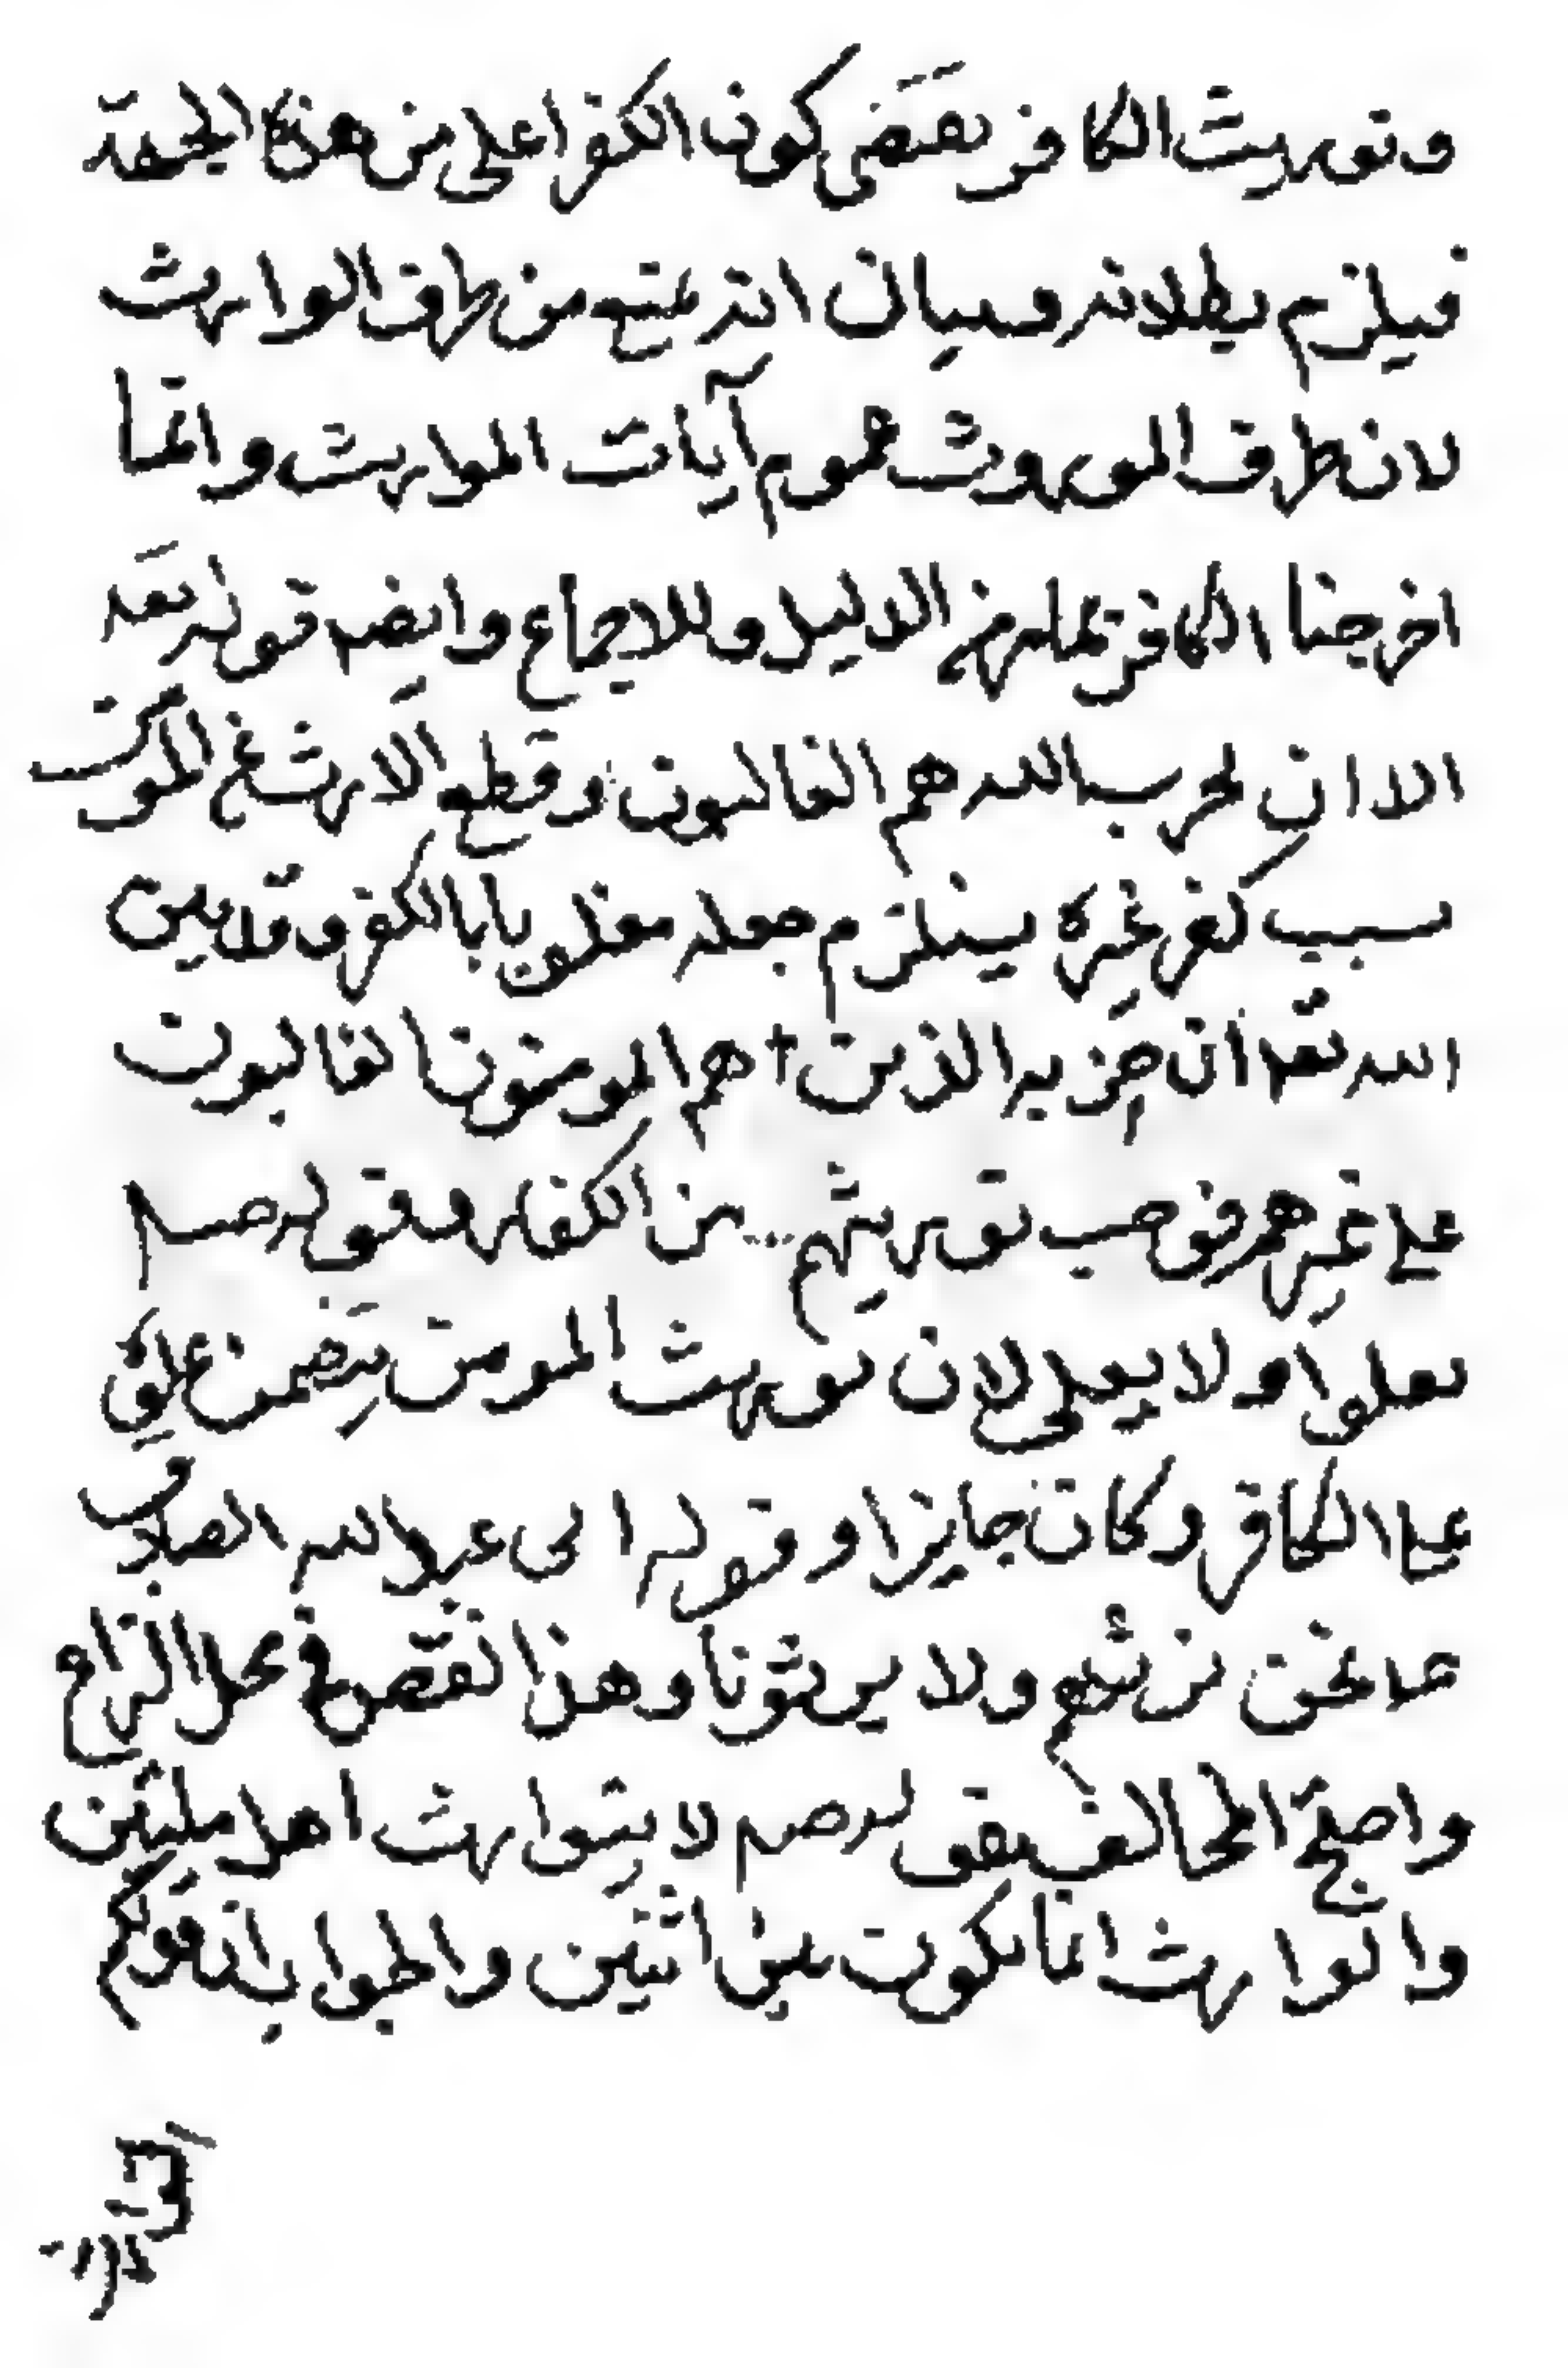 وتوريث الكافر يقتضى كون الكفر اعلى من هذه الجهة
فيلزم بطلانه وبيان انه يمتنع من طرف الوارث
لا من طرف الموروث عموم آيات المواريث وانما
اخرجنا الكافر بما مر من الدليل وللاجماع وايضا قوله تعه
الا ان حزب الله هم الغالبون وقطع الارث عن المومن
بسبب كفر غيره يستلزم جعله مغلوبا بالكفر وقد بين
الله تعه ان حزبه الذين هم المومنون الغالبون
على غيرهم فوجب توريثهم من الكفار وقوله صلم
يعلوا ولا يعلى لان توريث المومن يتضمن علوه
على الكافر وكان جايزا وقول ابى عبد الله الصادق
عه نحن نرثهم ولا يرثونا وهذا نص فى محل النزاع
واحتج المخالف بقوله صلم لا يتوارث اهل ملتين
والتوارث انما يكون بين اثنين والجواب انه قولكم